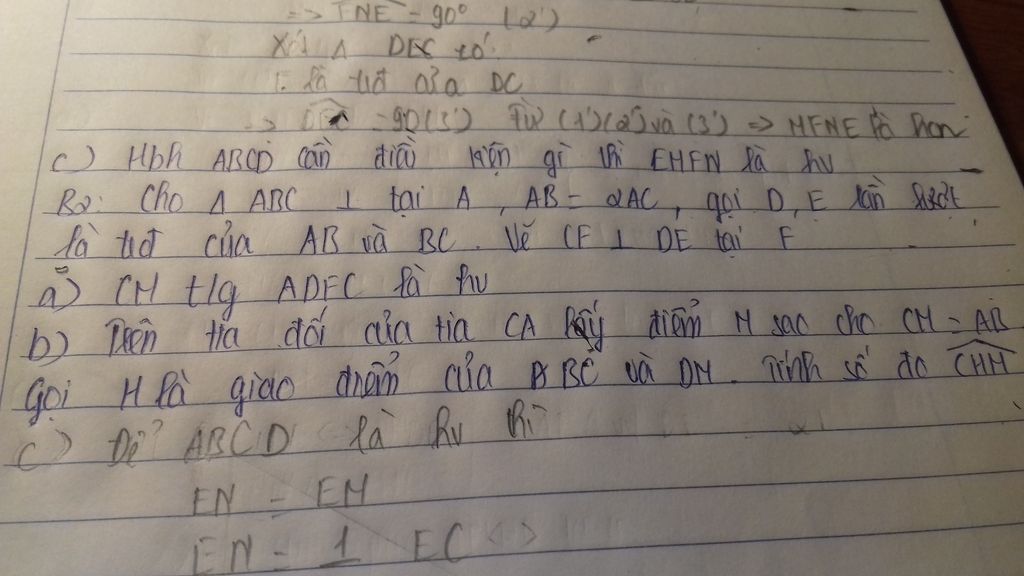 => FNE = 90° (2')
Xét Δ DEC có
F là tđ của DC
=> = 90 (3') Từ (1')(2') và (3') => MFNE là hcn
c) Hbh ABCD cần điều kiện gì thì EMFN là hv
B2: Cho Δ ABC ⊥ tại A, AB = 2AC, gọi D, E lần lượt
là tđ của AB và BC. Vẽ CF ⊥ DE tại F
a) CM t/g ADFC là hv
b) Trên tia đối của tia CA lấy điểm M sao cho CM = AB
Gọi H là giao điểm của BC và DM. Tính số đo CHM
c) Để ABCD là hv thì
EN = EM
EN = 1 EC